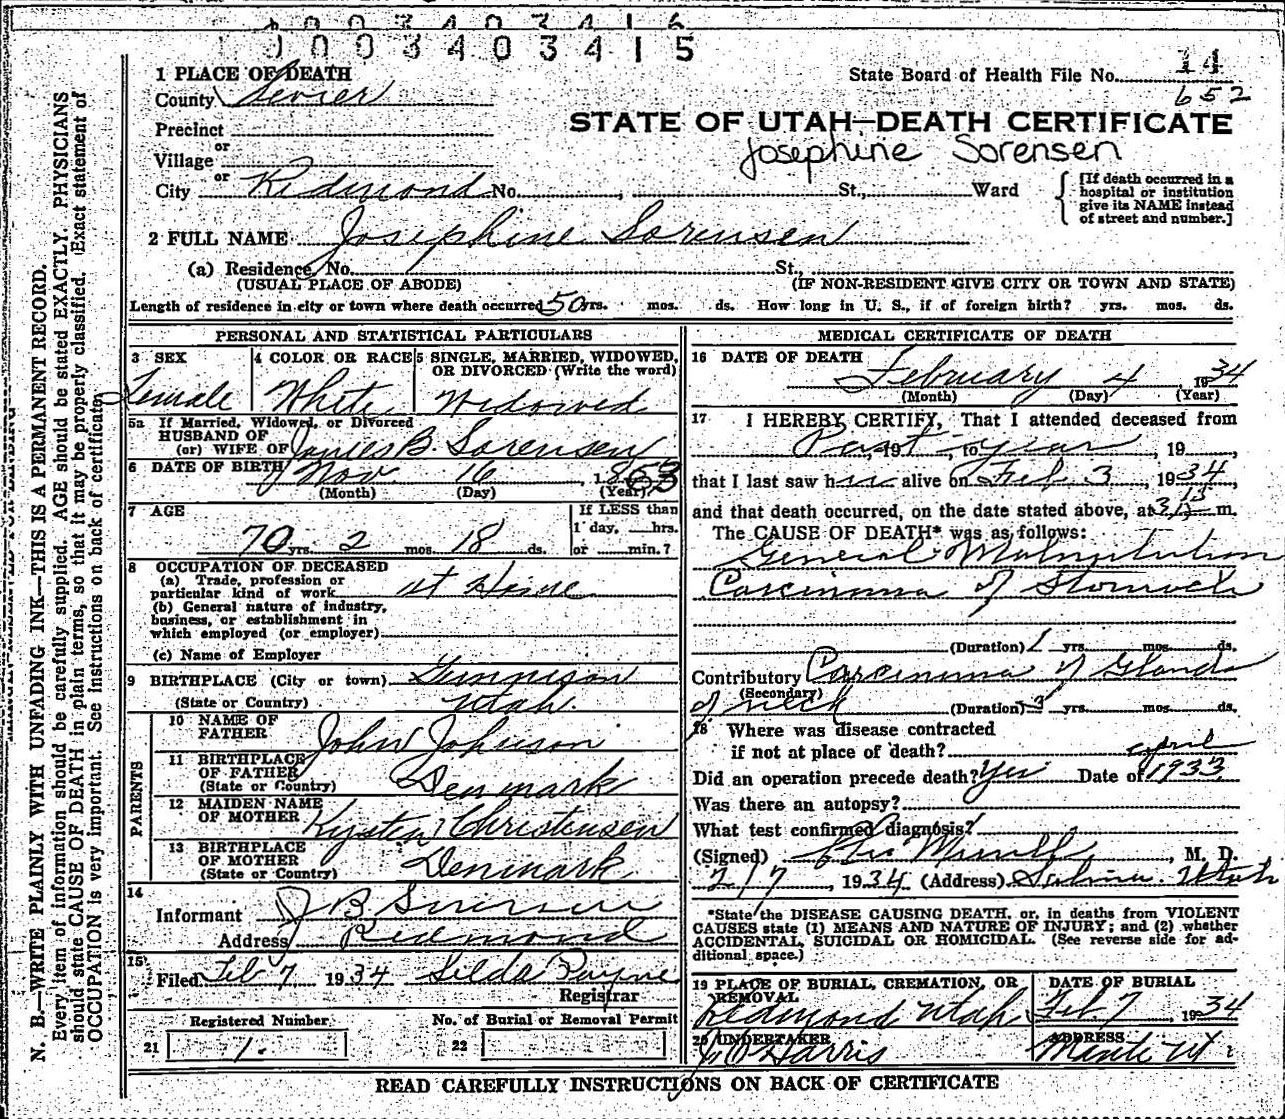 0003403415
1 PLACE OF DEATH
State Board of Health File No. 14
652
County Sevier
STATE OF UTAH—DEATH CERTIFICATE
Precinct
Josephine Sorensen
or
Village
or
City Redmond No. , St., Ward
[If death occurred in a hospital or institution give its NAME instead of street and number.]
2 FULL NAME Josephine Sorensen
(a) Residence, No. St.,
(USUAL PLACE OF ABODE) (IF NON-RESIDENT GIVE CITY OR TOWN AND STATE)
Length of residence in city or town where death occurred 50 yrs. mos. ds. How long in U. S., if of foreign birth? yrs. mos. ds.
PERSONAL AND STATISTICAL PARTICULARS
3 SEX
Female
4 COLOR OR RACE
White
5 SINGLE, MARRIED, WIDOWED, OR DIVORCED (Write the word)
Widowed
5a If Married, Widowed, or Divorced
HUSBAND OF
(or) WIFE OF James B. Sorensen
6 DATE OF BIRTH Nov. 16, 1863
(Month) (Day) (Year)
7 AGE
70 yrs. 2 mos. 18 ds.
If LESS than
1 day, hrs.
or min.?
8 OCCUPATION OF DECEASED
(a) Trade, profession or
particular kind of work at Home
(b) General nature of industry,
business, or establishment in
which employed (or employer)
(c) Name of Employer
9 BIRTHPLACE (City or town) Gunnison
(State or Country) Utah.
PARENTS
10 NAME OF
FATHER John Johnson
11 BIRTHPLACE
OF FATHER
(State or Country) Denmark
12 MAIDEN NAME
OF MOTHER Kysten Christensen
13 BIRTHPLACE
OF MOTHER
(State or Country) Denmark
14
Informant J B Sorensen
Address Redmond
15
Filed Feb 7 1934 Selda Payne
Registrar
Registered Number No. of Burial or Removal Permit
21 1. 22
MEDICAL CERTIFICATE OF DEATH
16 DATE OF DEATH
February 4 1934
(Month) (Day) (Year)
17 I HEREBY CERTIFY, That I attended deceased from
Past , 191 , to year , 19 ,
that I last saw her alive on Feb. 3 , 1934,
and that death occurred, on the date stated above, at m.
The CAUSE OF DEATH* was as follows:
General Malnutrition
Carcinoma of Stomach
(Duration) 1 yrs. mos. ds.
Contributory Carcinoma of Glands
(Secondary)
of neck (Duration) 3 yrs. mos. ds.
18 Where was disease contracted
if not at place of death?
april
Did an operation precede death? Yes Date of 1933
Was there an autopsy?
What test confirmed diagnosis?
(Signed) , M. D.
2/7 , 1934 (Address) Salina. Utah
*State the DISEASE CAUSING DEATH, or, in deaths from VIOLENT
CAUSES state (1) MEANS AND NATURE OF INJURY; and (2) whether
ACCIDENTAL, SUICIDAL OR HOMICIDAL. (See reverse side for ad-
ditional space.)
19 PLACE OF BURIAL, CREMATION, OR
REMOVAL
Redmond Utah
DATE OF BURIAL
Feb. 7 , 1934
20 UNDERTAKER
Harris
ADDRESS
Manti Ut
READ CAREFULLY INSTRUCTIONS ON BACK OF CERTIFICATE
N. B.—WRITE PLAINLY WITH UNFADING INK—THIS IS A PERMANENT RECORD.
Every item of information should be carefully supplied. AGE should be stated EXACTLY. PHYSICIANS
should state CAUSE OF DEATH in plain terms, so that it may be properly classified. Exact statement of
OCCUPATION is very important. See instructions on back of certificate.